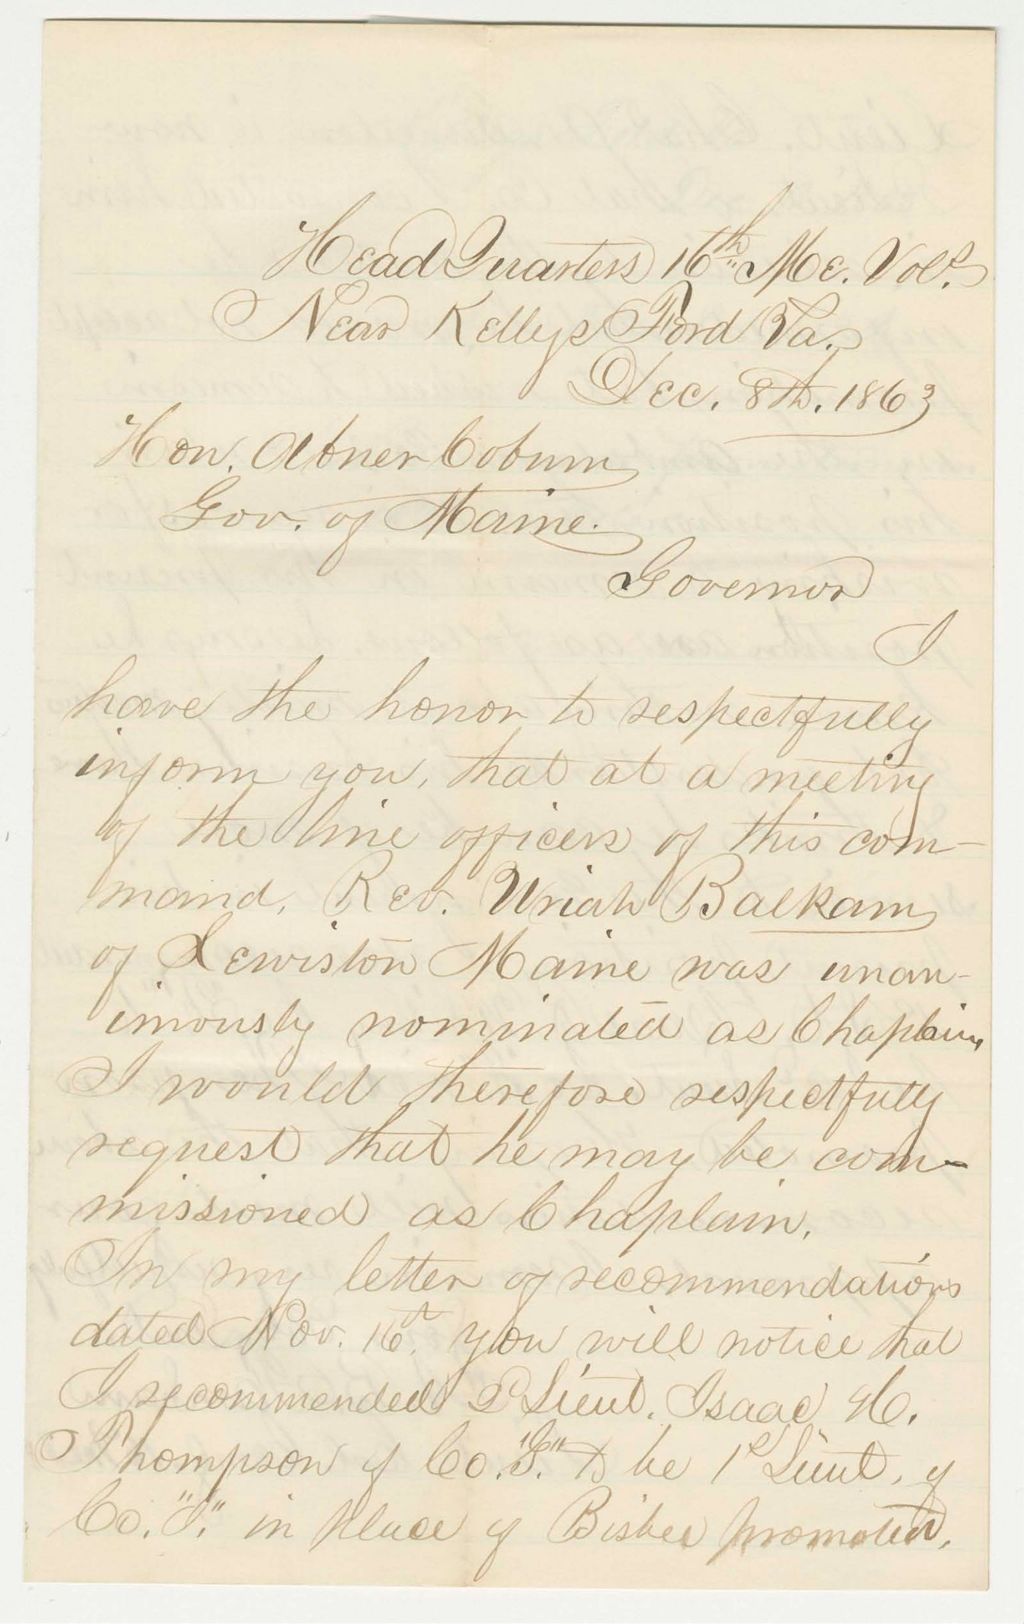 Head Quarters 16th Me. Vols.
Near Kellys Ford Va.
Dec. 8th. 1863
Hon. Abner Coburn
Gov. of Maine.
Governor
I
have the honor to respectfully
inform you, that at a meeting
of the line officers of this com-
mand, Rev. Uriah Balkam
of Lewiston Maine was unan-
imously nominated as Chaplain,
I would therefore respectfully
request that he may be com-
missioned as Chaplain.
In my letter of recommendations
dated Nov. 16th, you will notice that
I recommended 2d Lieut. Isaac H.
Thompson of Co. "G." to be 1st Lieut. of
Co. "I." in place of Bisbee promoted,